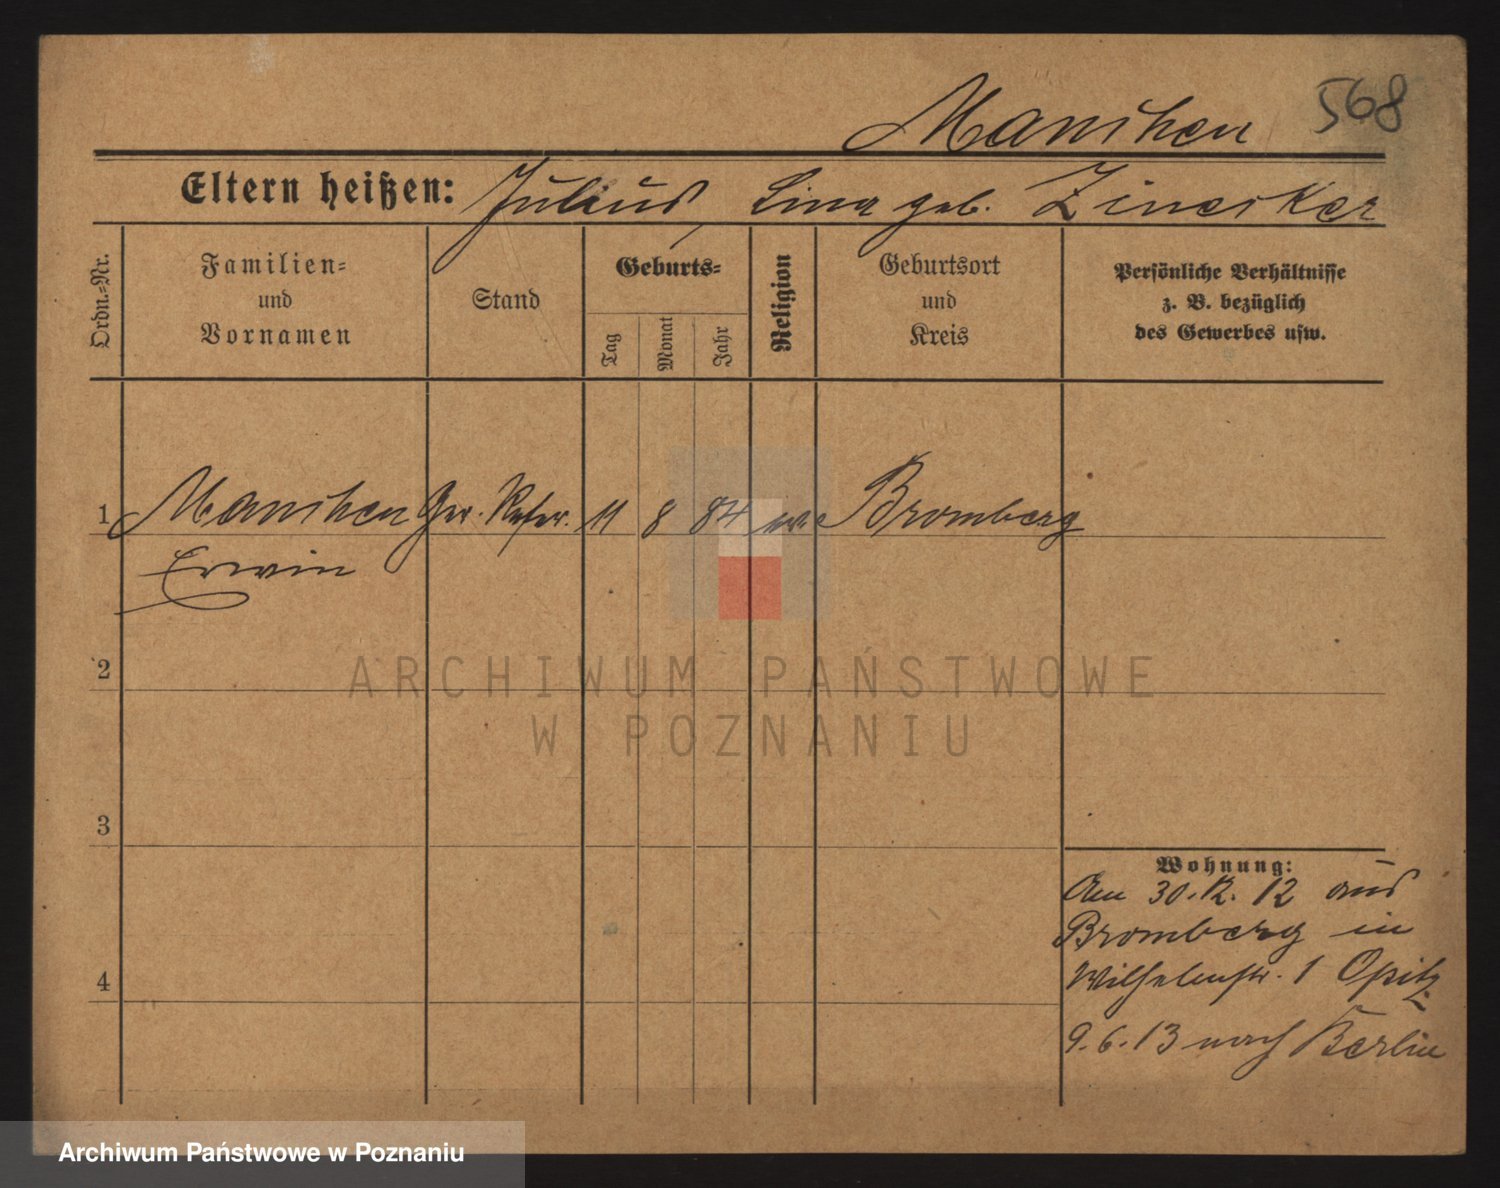 568
Manthey
Eltern heißen: Julius Lina geb.
Ordn.-Nr.
Familien-
und
Vornamen
Stand
Geburts-
Tag
Monat
Jahr
Religion
Geburtsort
und
Kreis
Persönliche Verhältnisse
z. B. bezüglich
des Gewerbes usw.
1 Ger. Refer. 11 8 84 Bromberg
Erwin
2
ARCHIWUM PAŃSTWOWE
W POZNANIU
3
4
Wohnung:
Am 30. 12. 12 aus
Bromberg in
Wilhelmstr. 1 Opitz
9.6.13 nach Berlin
Archiwum Państwowe w Poznaniu